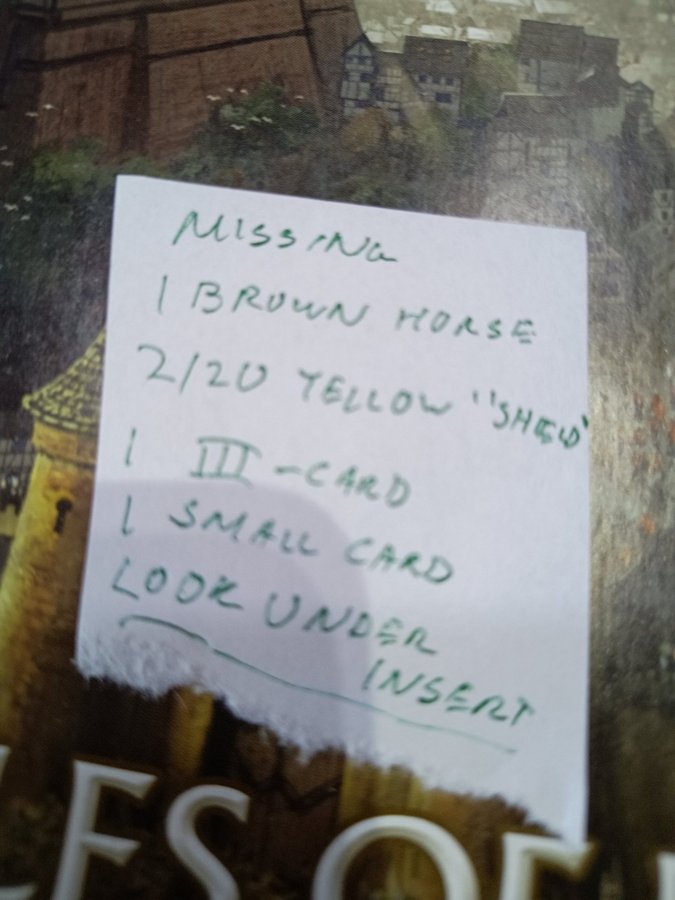 MISSING
1 BROWN HORSE
2/20 YELLOW "SHEILD"
1 III-CARD
1 SMALL CARD
LOOK UNDER
INSERT
LES OF